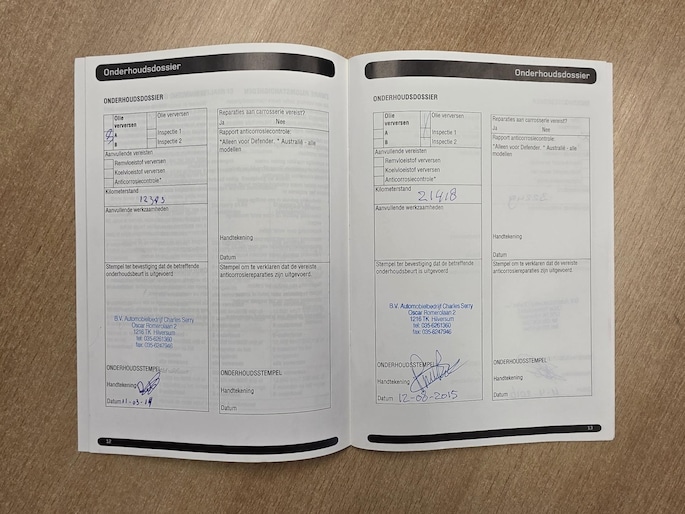 Onderhoudsdossier
ONDERHOUDSDOSSIER
Olie verversen
A
B
Olie verversen
Inspectie 1
Inspectie 2
Aanvullende vereisten
Remvloeistof verversen
Koelvloeistof verversen
Anticorrosiecontrole*
Kilometerstand
12383
Aanvullende werkzaamheden
Stempel ter bevestiging dat de betreffende
onderhoudsbeurt is uitgevoerd
B.V. Automobielbedrijf Charles Serry
Oscar Romerolaan 2
1216 TK Hilversum
tel. 035-6261360
fax: 035-6247946
ONDERHOUDSSTEMPEL
Handtekening
Datum 11-03-14
Reparaties aan carrosserie vereist?
Ja Nee
Rapport anticorrosiecontrole:
*Alleen voor Defender, * Australië - alle
modellen
Handtekening
Datum
Stempel om te verklaren dat de vereiste
anticorrosiereparaties zijn uitgevoerd.
ONDERHOUDSSTEMPEL
Handtekening
Datum
12
Onderhoudsdossier
ONDERHOUDSDOSSIER
Olie
verversen
A
B
Olie verversen
Inspectie 1
Inspectie 2
Aanvullende vereisten
Remvloeistof verversen
Koelvloeistof verversen
Anticorrosiecontrole*
Kilometerstand
21418
Aanvullende werkzaamheden
Stempel ter bevestiging dat de betreffende
onderhoudsbeurt is uitgevoerd
B.V. Automobielbedrijf Charles Serry
Oscar Romerolaan 2
1216 TK Hilversum
tel. 035-6261360
fax: 035-6247946
ONDERHOUDSSTEMPEL
Handtekening
Datum 12-03-2015
Reparaties aan carrosserie vereist?
Ja Nee
Rapport anticorrosiecontrole:
*Alleen voor Defender, * Australië - alle
modellen
Handtekening
Datum
Stempel om te verklaren dat de vereiste
anticorrosiereparaties zijn uitgevoerd.
ONDERHOUDSSTEMPEL
Handtekening
Datum
13